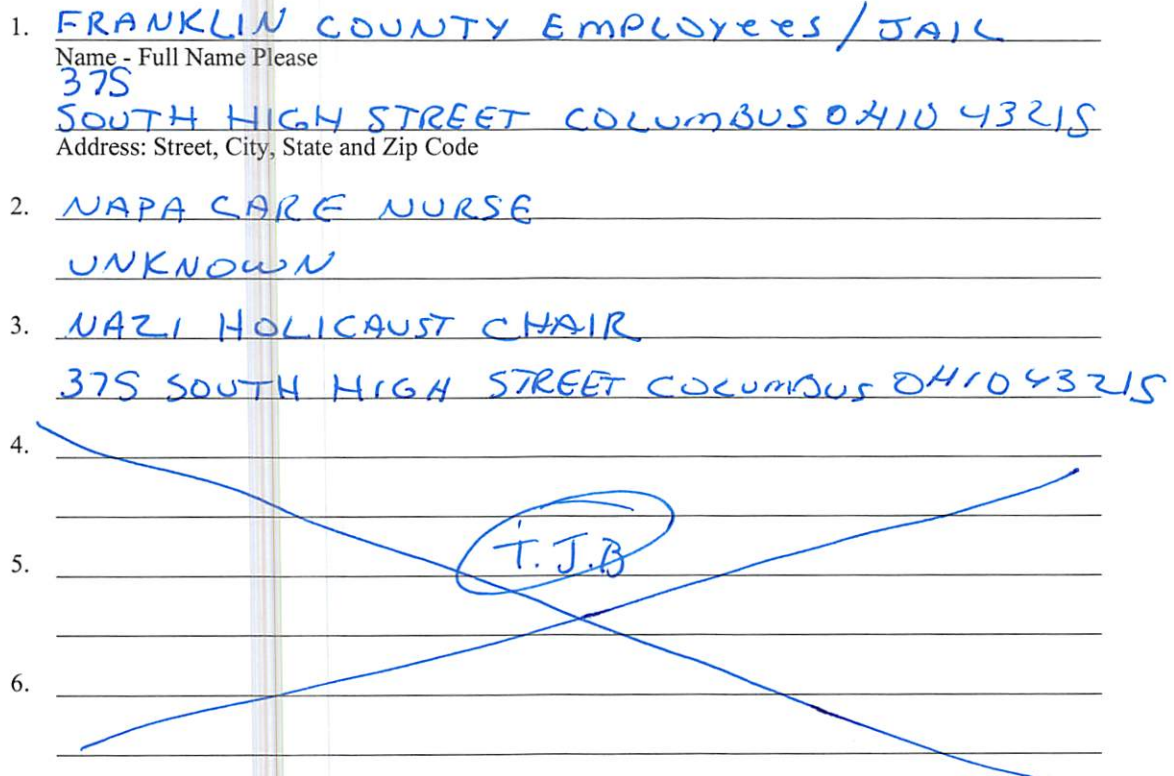 1. FRANKLIN COUNTY EMPLOYeeS / JAIL
Name - Full Name Please
375
SOUTH HIGH STREET COLUMBUS OHIO 43215
Address: Street, City, State and Zip Code
2. NAPA CARE NURSE
UNKNOWN
3. NAZI HOLICAUST CHAIR
375 SOUTH HIGH STREET COLUMBUS OHIO 43215
4.
T.J.B
5.
6.